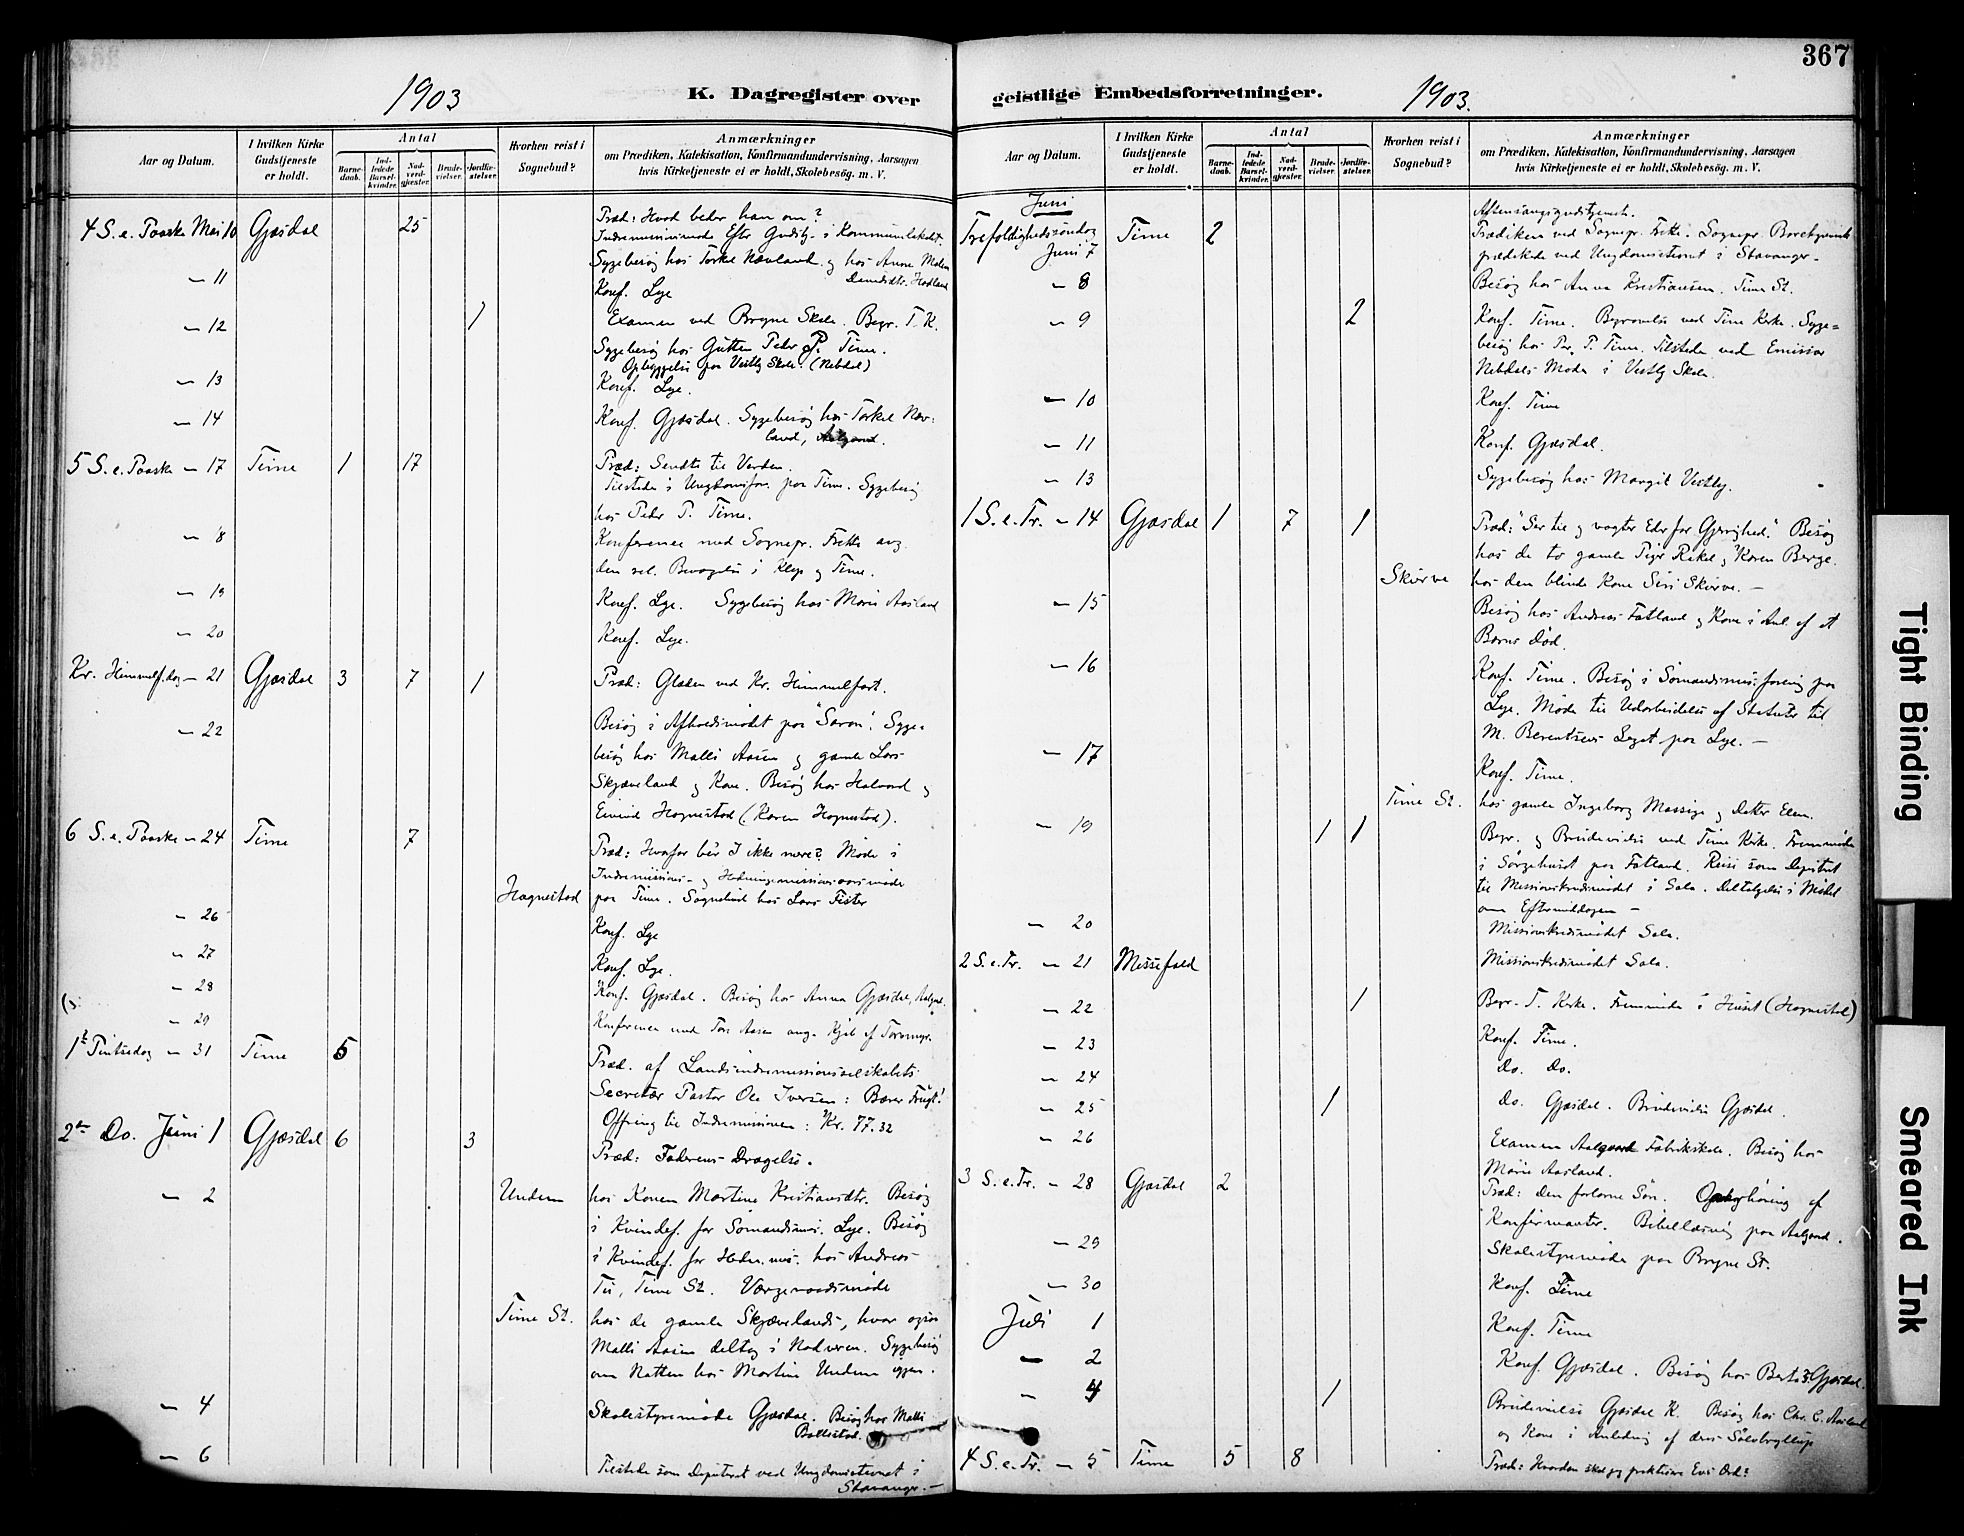 367
1903
K. Dagregister over
Aar og Datum.
I hvilken Kirke Gudstjeneste er holdt.
Antal
Barnedaab.
Indledede Barselkvinder.
Nadverdgjæster.
Brudevielser.
Jordfæstelser.
Hvorhen reist i Sognebud?
Anmærkninger
om Prædiken, Katekisation, Konfirmandundervisning, Aarsagen
hvis Kirketjeneste ei er holdt, Skolebesøg. m. V.
4 S. e. Paaske Mai 10 Gjæsdal 25 Præd: Hvad beder han om?
Indremissionsmøde Efter Gudstj. i Kommunelokalet.
Sygebesøg hos Torkel Nævland og hos Anna Malen
— 11 Konf. Lye
— 12 1 Examen ved Bryne Skole. Begr. T. K.
Sygebesøg hos Gutten Peder P. Time.
Opbyggelse paa Vestly Skole. (Nebdal)
— 13 Konf. Lye.
— 14 Konf. Gjæsdal. Sygebesøg hos Torkel Næv-
land, Aalgaard.
5 S. e. Paaske — 17 Time 1 17 Præd: Sendte til Verden.
Tilstede i Ungdomsfor. paa Time. Sygebesøg
hos Peder P. Time.
— 18 Konference med Sognepr. Fette ang.
den rel. Bevægelse i Klep og Time.
— 19 Konf. Lye. Sygebesøg hos Marie Aasland
— 20 Konf. Lye.
Kr. Himmelf.dag — 21 Gjæsdal 3 7 1 Præd: Glæden ved Kr. Himmelfart.
— 22 Besøg i Afholdsmødet paa "Saron". Syge-
besøg hos Malli Aasen og gamle Lars
Skjæveland og Kone. Besøg hos Halvard og
Eivind Hognestad (Karen Hognestad).
6 S. e. Paaske — 24 Time 7 Præd: Hvorfor bør I ikke være? Møde i
Indremissions- og Hedningemissionsaarsmøde
Hognestad paa Time. Sognebud hos Lars Fister
— 26 Konf. Lye
— 27 Konf. Lye.
— 28 Konf. Gjæsdal. Besøg hos Anna Gjæsdal, Aalgaard.
— 29 Konferense med Tore Aasen ang. Kjøb af Torvmyr.
1ste Pintsedag — 31 Time 5 Præd. af Landsindremissionsselskabets
Secretær Pastor Ole Iversen: Bærer Frugt!
Offring til Indremissionen: Kr. 77.32
2den Do. Juni 1 Gjæsdal 6 3 Præd: Faderens Dragelse.
— 2 Undem hos Konen Martine Kristiansdtr. Besøg
i Kvindef. for Sømandsmis. Lye. Besøg
i Kvindef. for Hedn.mis. hos Andreas
Tu, Time St. Værgeraadsmøde
Time St. hos de gamle Skjævelands, hvor ogsaa
Malli Aasen deltog i Nadveren. Sygebesøg
om Natten hos Martine Undem igjen.
— 4 Skolestyremøde Gjæsdal. Besøg hos Malli
— 6 Tilstede som Deputeret ved Ungdomsstevnet i
Stavanger. —
geistlige Embedsforretninger.
1903.
Aar og Datum.
I hvilken Kirke Gudstjeneste er holdt.
Antal
Barnedaab.
Indledede Barselkvinder.
Nadverdgjæster.
Brudevielser.
Jordfæstelser.
Hvorhen reist i Sognebud?
Anmærkninger
om Prædiken, Katekisation, Konfirmandundervisning, Aarsagen
hvis Kirketjeneste ei er holdt, Skolebesøg. m. V.
Juni
Aftensangsgudstjeneste.
Trefoldighedssøndag Juni 7 Time 2 Prædiken ved Sognepr. Fette. Sognepr. Borchgrevink
prædikede ved Ungdomsstevnet i Stavanger.
— 8 Besøg hos Anna Kristiansen, Time St.
— 9 2 Konf. Time. Begravelse ved Time Kirke. Syge-
besøg hos Per P. Time. Tilstede ved Emissær
Nebdals Møde i Vestly Skole.
— 10 Konf. Time
— 11 Konf. Gjæsdal.
— 13 Sygebesøg hos Margit Vestly.
1 S. e. Tr. — 14 Gjæsdal 1 7 1 Præd: "Ser til og vogter Eder for Gjerrighed." Besøg
hos de to gamle Piger Rakel og Karen Berge.
Skurve hos den blinde Kone Siri Skurve. —
— 15 Besøg hos Andreas Fatland og Kone i Anl. af et
Barns Død.
— 16 Konf. Time. Besøg i Sømandsmis.forening paa
Lye. Møde til Udarbeidelse af Statuter til
M. Berentsens Legat paa Lye. —
— 17 Konf. Time.
Time St. hos gamle Ingeborg Massige og Datter Elen.
— 19 1 1 Begr. og Brudevielse ved Time Kirke. Fremmøde
i Sørgehuset paa Fatland. Reise som Deputeret
til Missionskredsmødet i Sola. Deltagelse i Mødet
om Eftermiddagen —
— 20 Missionskredsmødet Sola.
2 S. e. Tr. — 21 Messefald Missionskredsmødet Sola.
— 22 1 Begr. T. Kirke. Fremmøde i Huset (Hognestad)
— 23 Konf. Time.
— 24 Do. Do.
— 25 1 do. Gjæsdal. Brudevielse Gjæsdal.
— 26 Examen Aalgaard Fabrikskole. Besøg hos
Marie Aasland.
3 S. e. Tr. — 28 Gjæsdal 2 Præd: Den forlorne Søn. Overhøring af
Konfirmanter. Bibellæsning paa Aalgaard.
— 29 Skolestyremøde paa Bryne St.
— 30 Konf. Time
Juli 1 Konf. Time
— 2 Konf. Gjæsdal. Besøg hos Gjæsdal.
— 4 1 Brudevielse Gjæsdal K. Besøg hos Chr. C. Aasland
og Kone i Anledning af deres Sølvbryllup
4 S. e. Tr. — 5 Time 5 8 Præd: Hvordan skal jeg praktisere Guds Ord?
Tight Binding
Smeared Ink